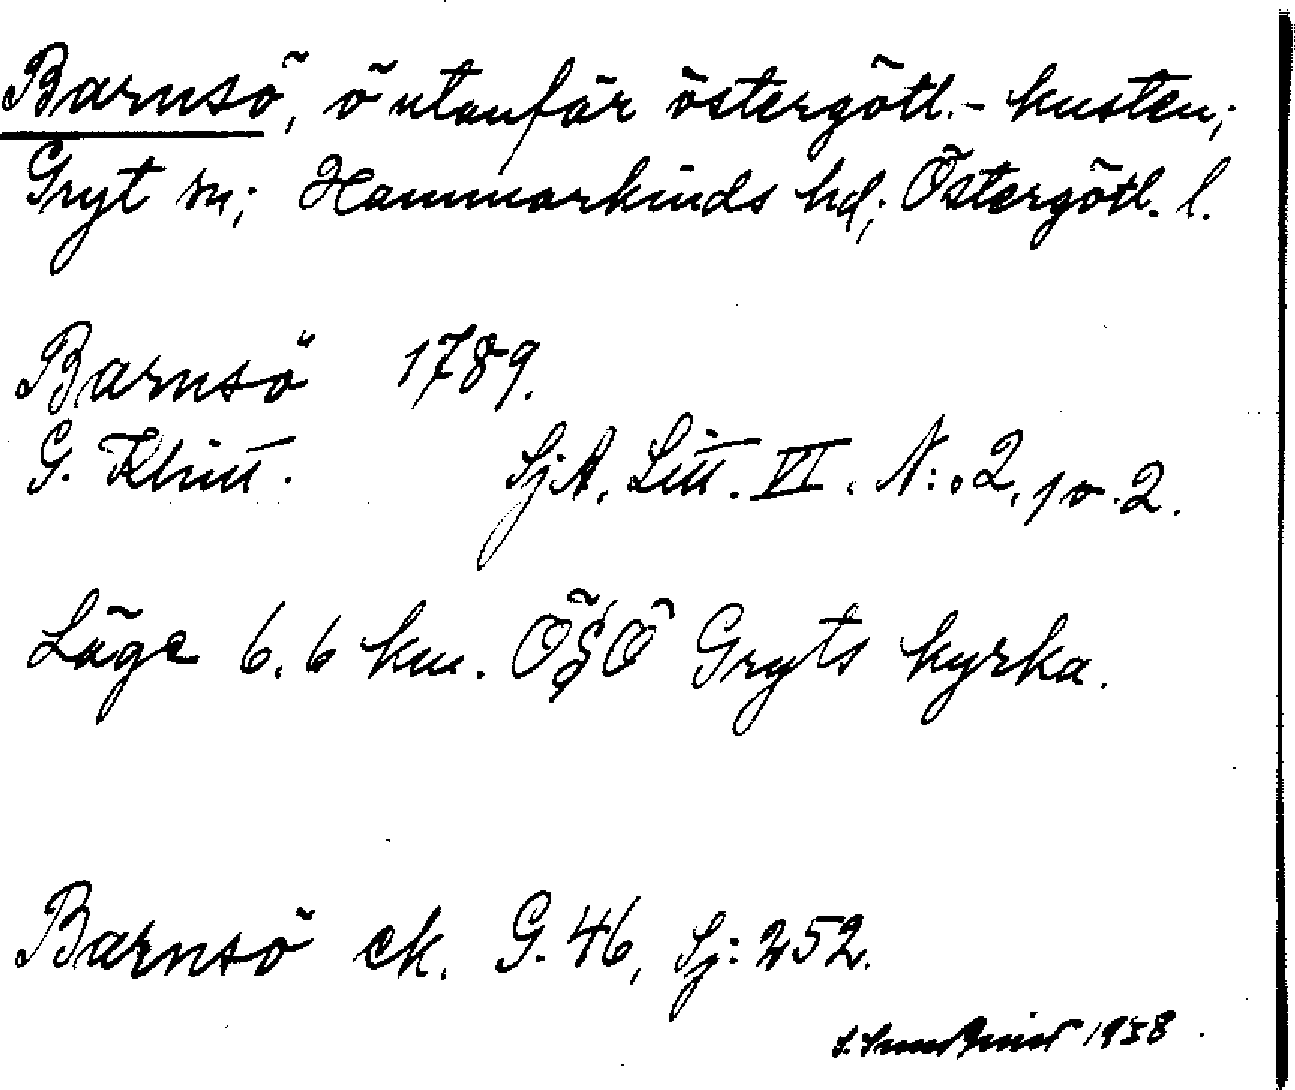 Barnsö, ö utanför östergötl.- kusten;
Gryt sn; Hammarkinds hd; Östergötl. l.
Barnsö 1789.
G. Klint. SjA. Litt. VI. N:o 2, pr. 2.
Läge 6.6 km. ÖSÖ Gryts kyrka.
Barnsö ek. G. 46, Sj: 252.
1938